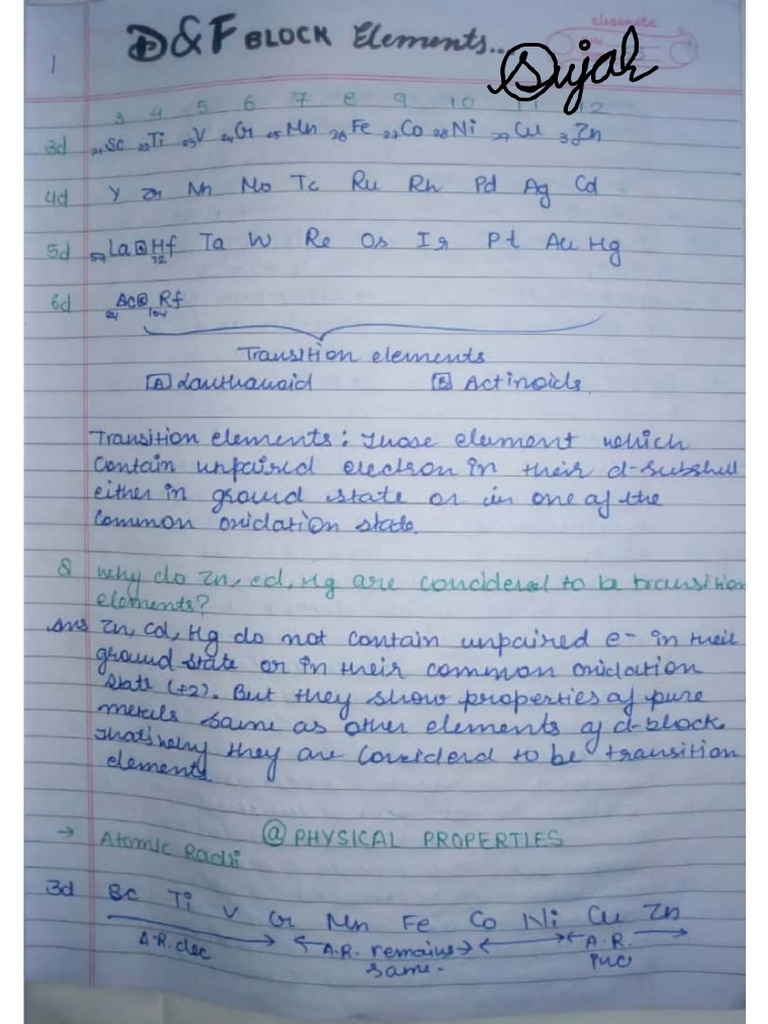 D&F BLOCK Elements...
Sujal
1
3 4 5 6 7 8 9 10 11 12
3d 21Sc 22Ti 23V 24Cr 25Mn 26Fe 27Co 28Ni 29Cu 30Zn
4d Y Zr Nh Mo Tc Ru Rh Pd Ag Cd
5d 57La A Hf 72 Ta W Re Os Ir Pt Au Hg
6d Ac Rf 104
Transition elements
A Lanthanoid B Actinoids
Transition elements: Those element which
contain unpaired electron in their d-subshell
either in ground state or in one of the
common oxidation state.
Q why do Zn, cd, Hg are concidered to be transition
elements?
Ans Zn, Cd, Hg do not contain unpaired e- in their
ground state or in their common oxidation
state (+2). But they show properties of pure
metals same as other elements of d-block.
That's why they are Considerd to be transition
elements.
@ PHYSICAL PROPERTIES
→ Atomic Radii
3d Sc Ti V Cr Mn Fe Co Ni Cu Zn
A.R. dec A.R. remains A.R.
same. inc